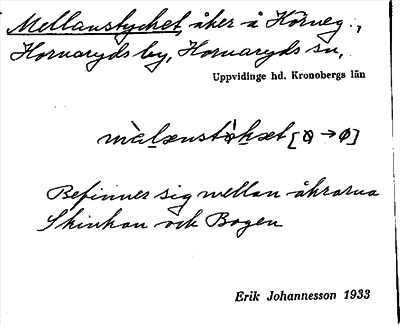 Mellanstycket, åker å Körneg.,
Hornaryds by, Hornaryds sn,
Uppvidinge hd. Kronobergs län
Befinner sig mellan åkrarna
Skinkan och Bogen
Erik Johannesson 1933